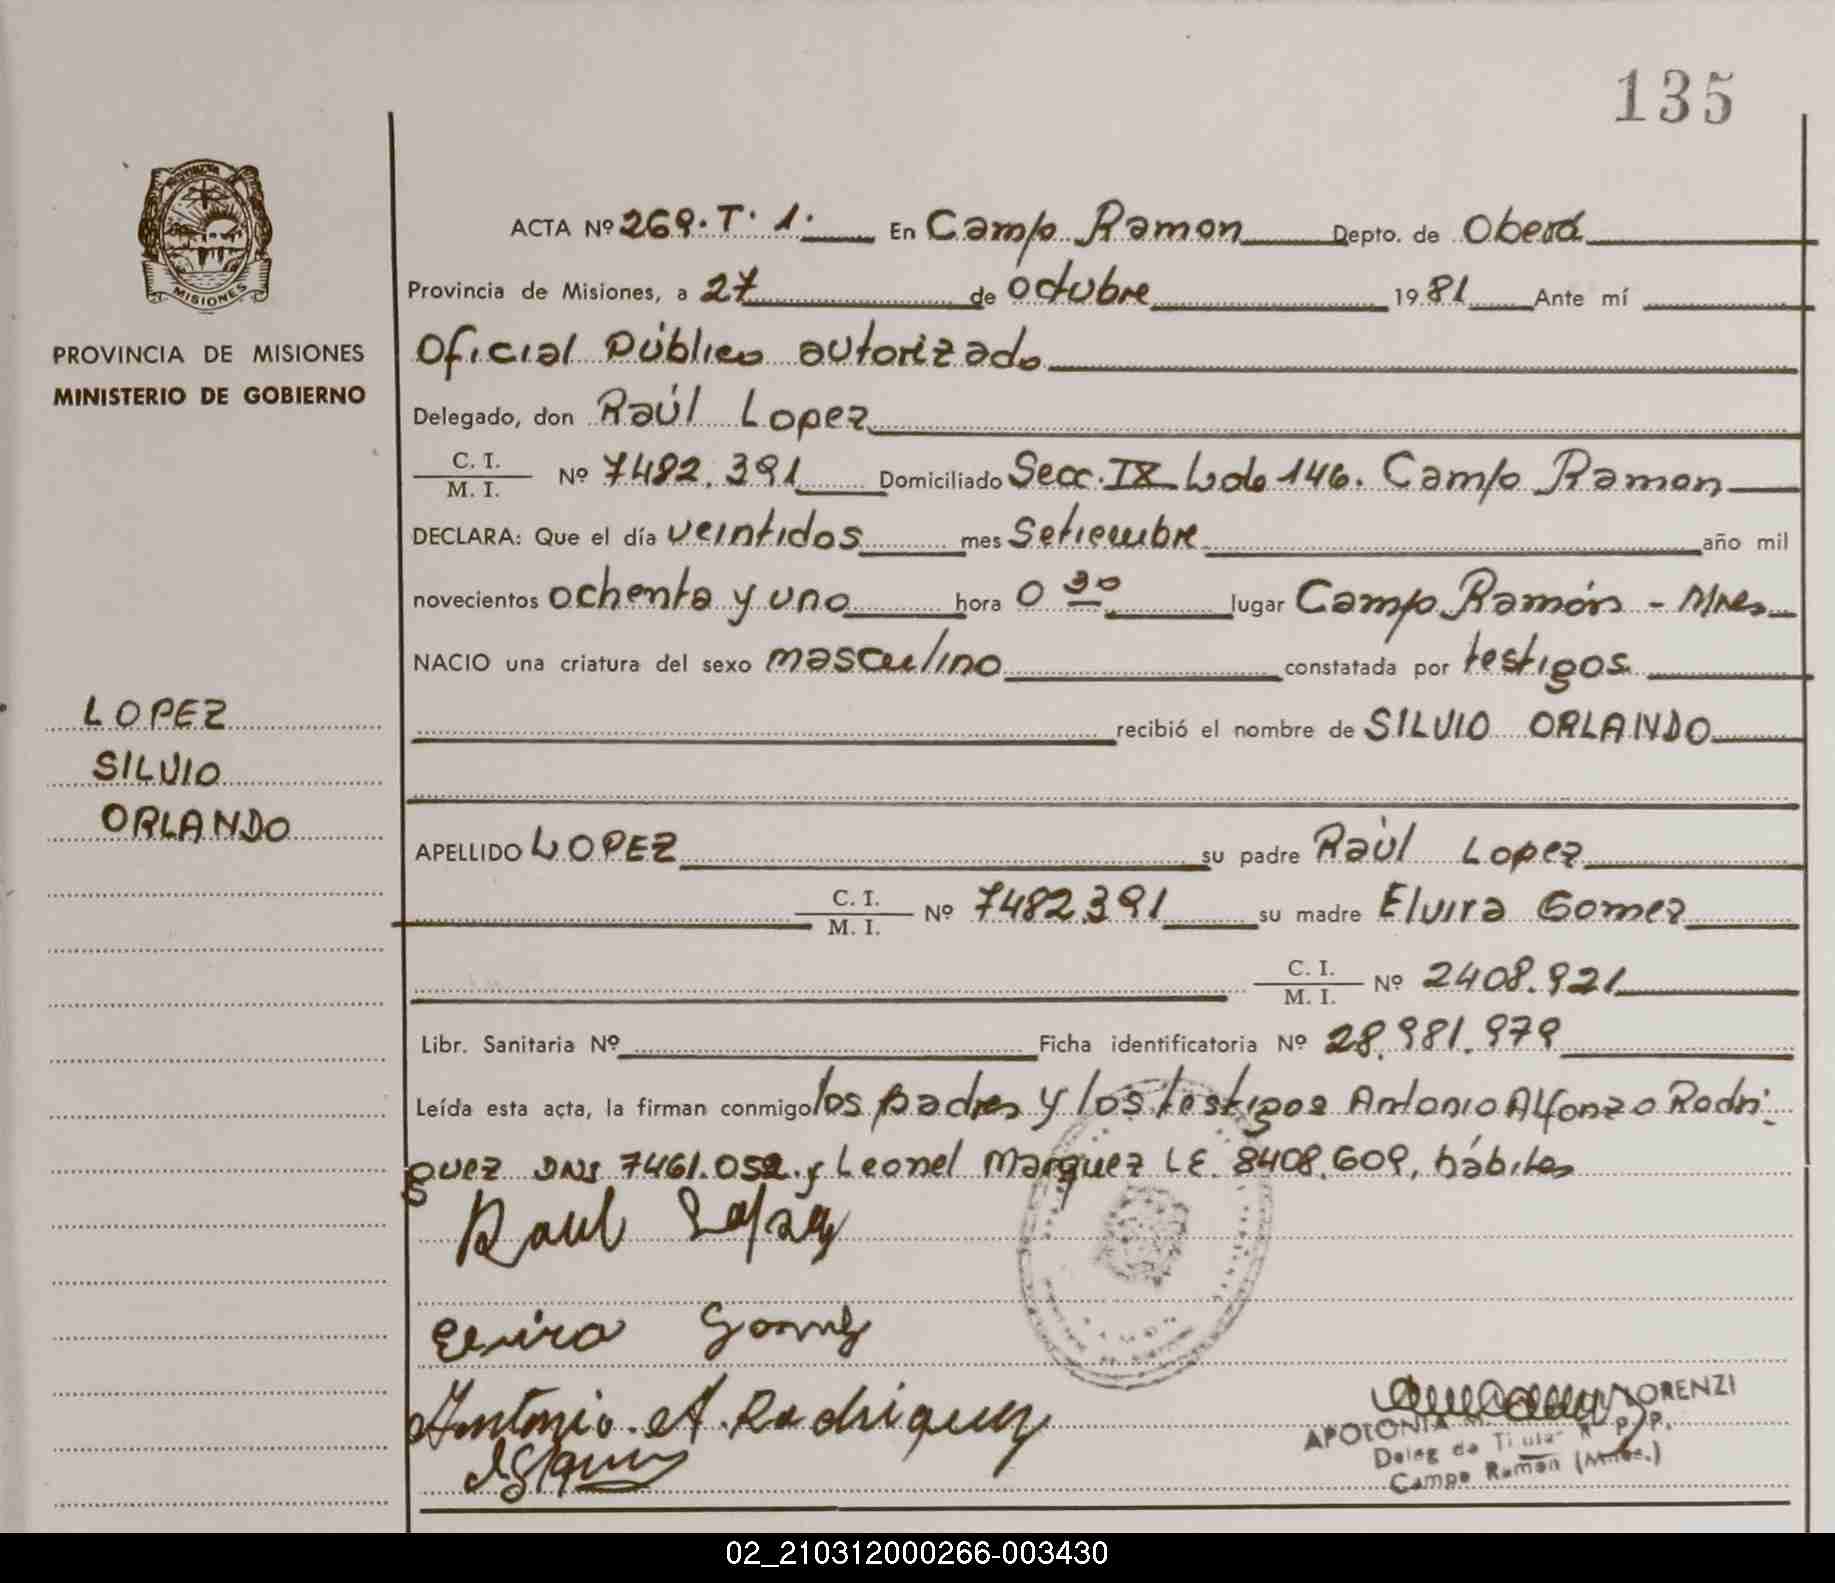 135
PROVINCIA
MISIONES
PROVINCIA DE MISIONES
MINISTERIO DE GOBIERNO
LOPEZ
SILVIO
ORLANDO
ACTA Nº 269. T. 1. En Campo Ramon Depto. de Oberá
Provincia de Misiones, a 27 de octubre 1981 Ante mí
Oficial Público autorizado
Delegado, don Raúl Lopez
C. I.
M. I. Nº 7482.391 Domiciliado Secc. IX Lote 146. Campo Ramon
DECLARA: Que el día veintidos mes Setiembre año mil
novecientos ochenta y uno hora 0 30 lugar Campo Ramón - Mnes
NACIO una criatura del sexo masculino constatada por testigos
recibió el nombre de SILVIO ORLANDO
APELLIDO LOPEZ su padre Raúl Lopez
C. I.
M. I. Nº 7482.391 su madre Elvira Gomez
C. I.
M. I. Nº 2408.921
Libr. Sanitaria Nº Ficha identificatoria Nº 28.981.979
Leída esta acta, la firman conmigo los padres y los testigos Antonio Alfonzo Rodri
guez DNI 7461.052. y Leonel Marquez LE. 8408.609, hábiles
Raul Lopez
Elvira Gomez
Antonio. A. Rodriguez
LORENZI
APOLONIA
Deleg de Titular R. P. P.
Campo Ramón (Mnes.)
02_210312000266-003430